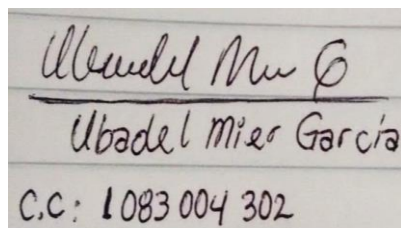 Ubadel Mier G
Ubadel Mier Garcia
C.C: 1083 004 302